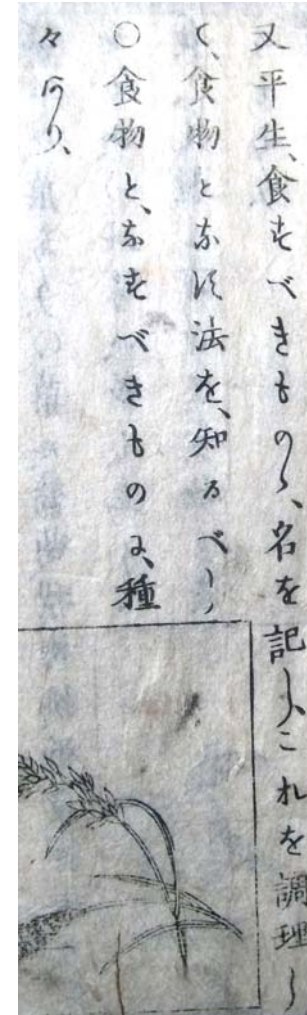 又平生、食すべきものゝ、名を記し、これを調理し
て、食物となす法を、知るべし、
○食物と、なすべきものに、種
々あり、